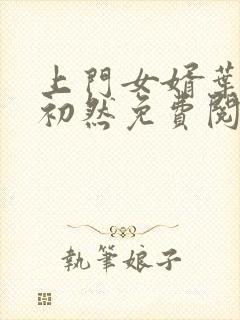 上門女婿葉
初然免費閱
執筆娘子